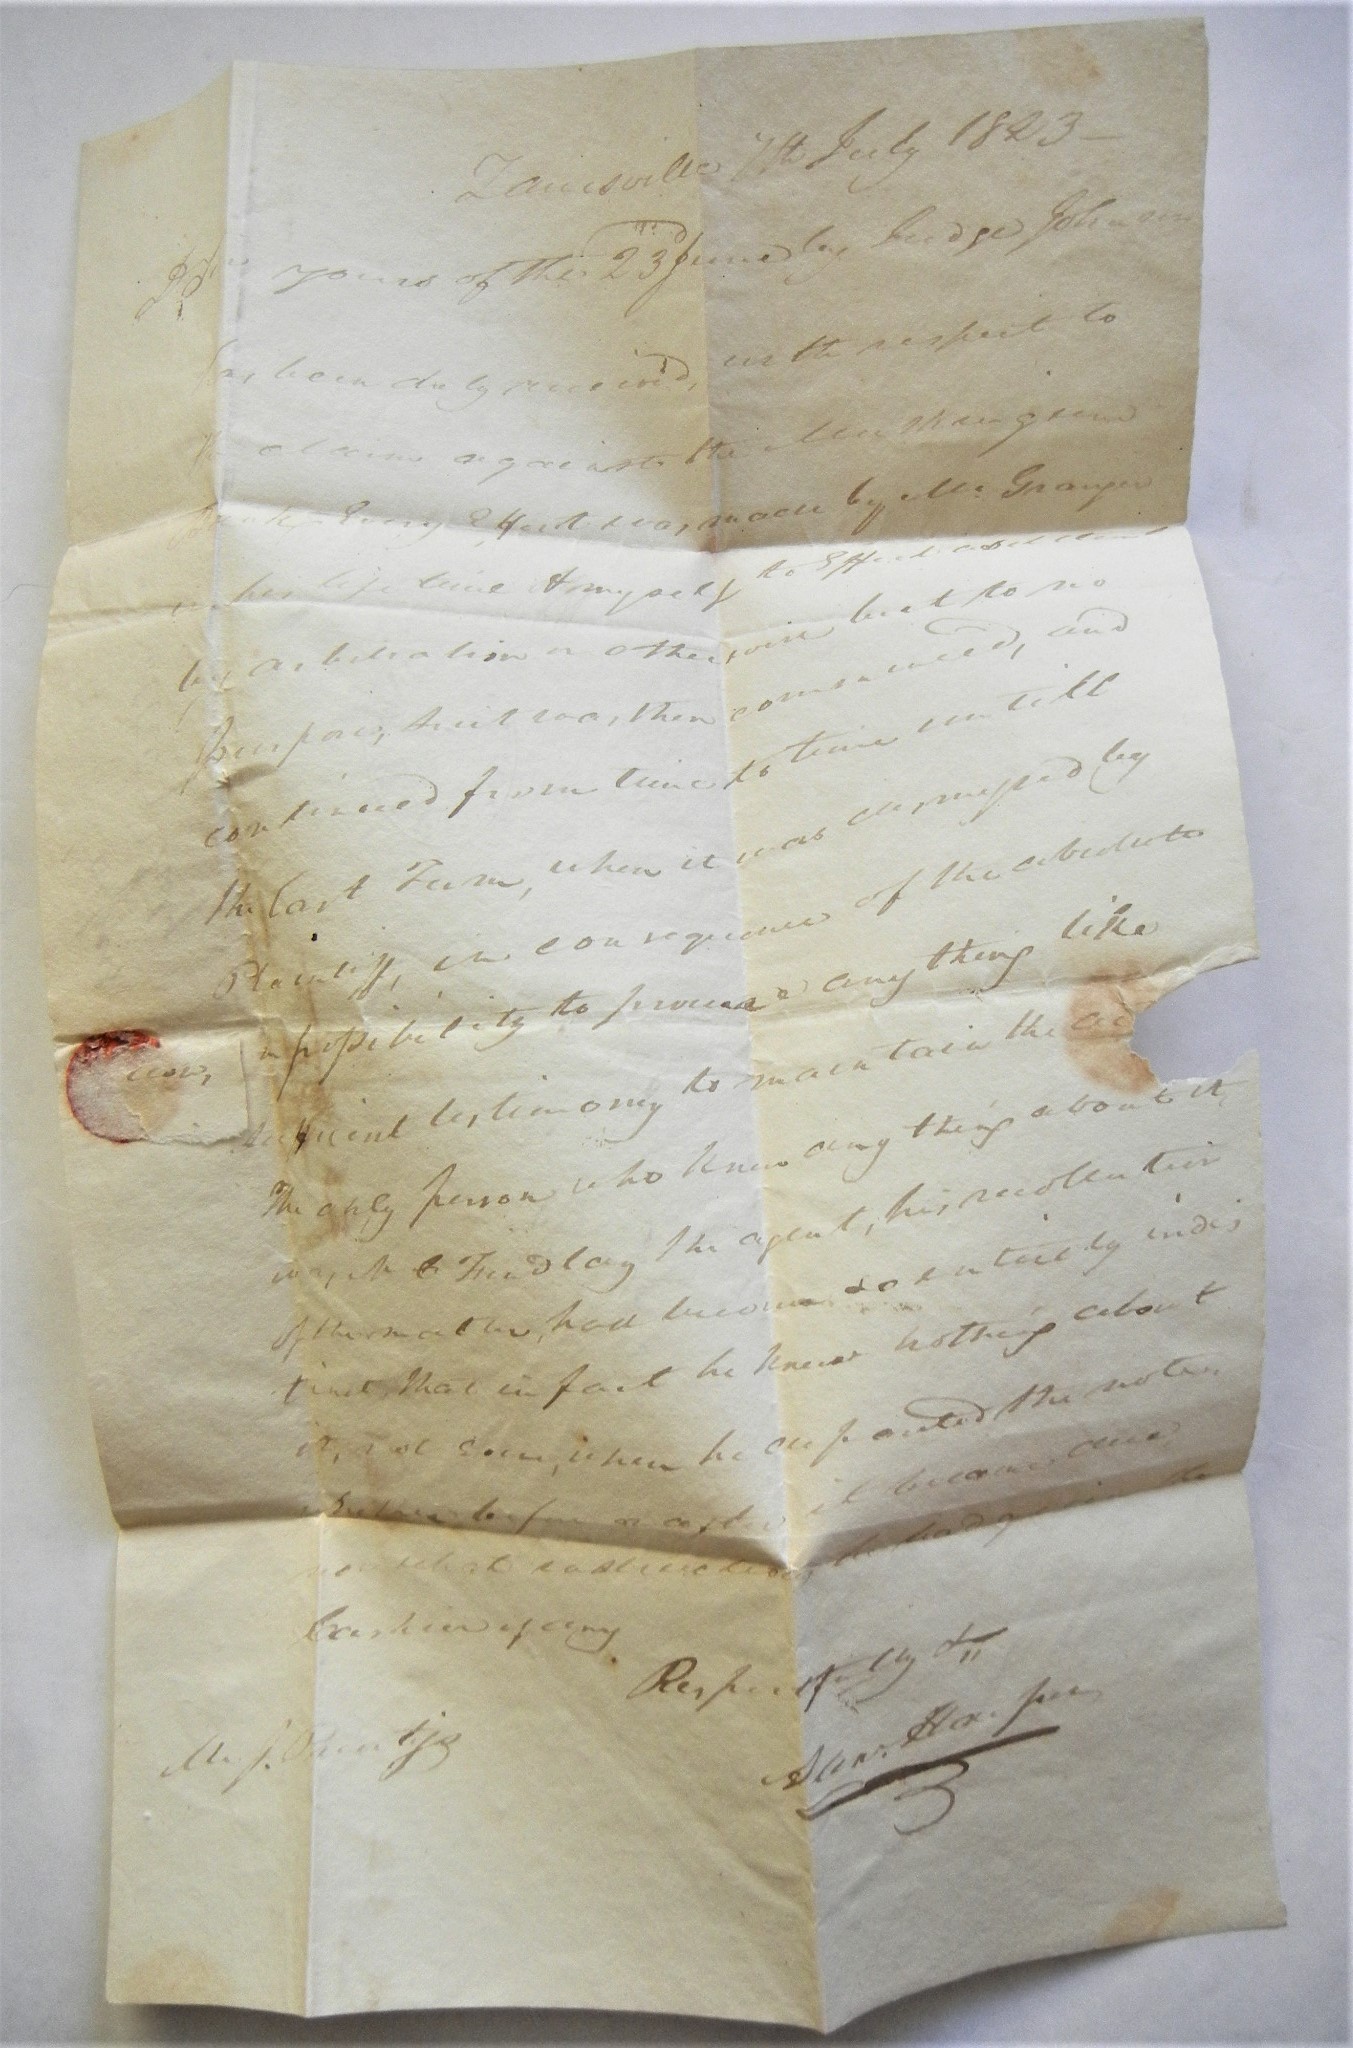 Zanesville 7th July 1823 —
yours of the 23d June by Judge Johnson
has been duly received, with respect to
the claim against the Muskingum
Bank Every Effort was, made by Mr. Granger
in his life time & myself to Effect a settlement
by arbitration or otherwise but to no
purpose, suit was, then commenced, and
continued from time to time untill
the last Term, when it was dismissed by
Plaintiff, in consequence of the absolute
impossibility to procure any thing like
sufficient testimony to maintain the ac
tion,
The only person who knew any thing about it,
was, Findlay the agent, his, recollection
of the matter, had become so entirely indis
tinct, that in fact he knew nothing about
it, not even, when he deposited the notes,
whether before or after it became due
nor what instructions, he had given the
Cashier if any.
Respectfully &c
Harper
Mr J. Prentiss